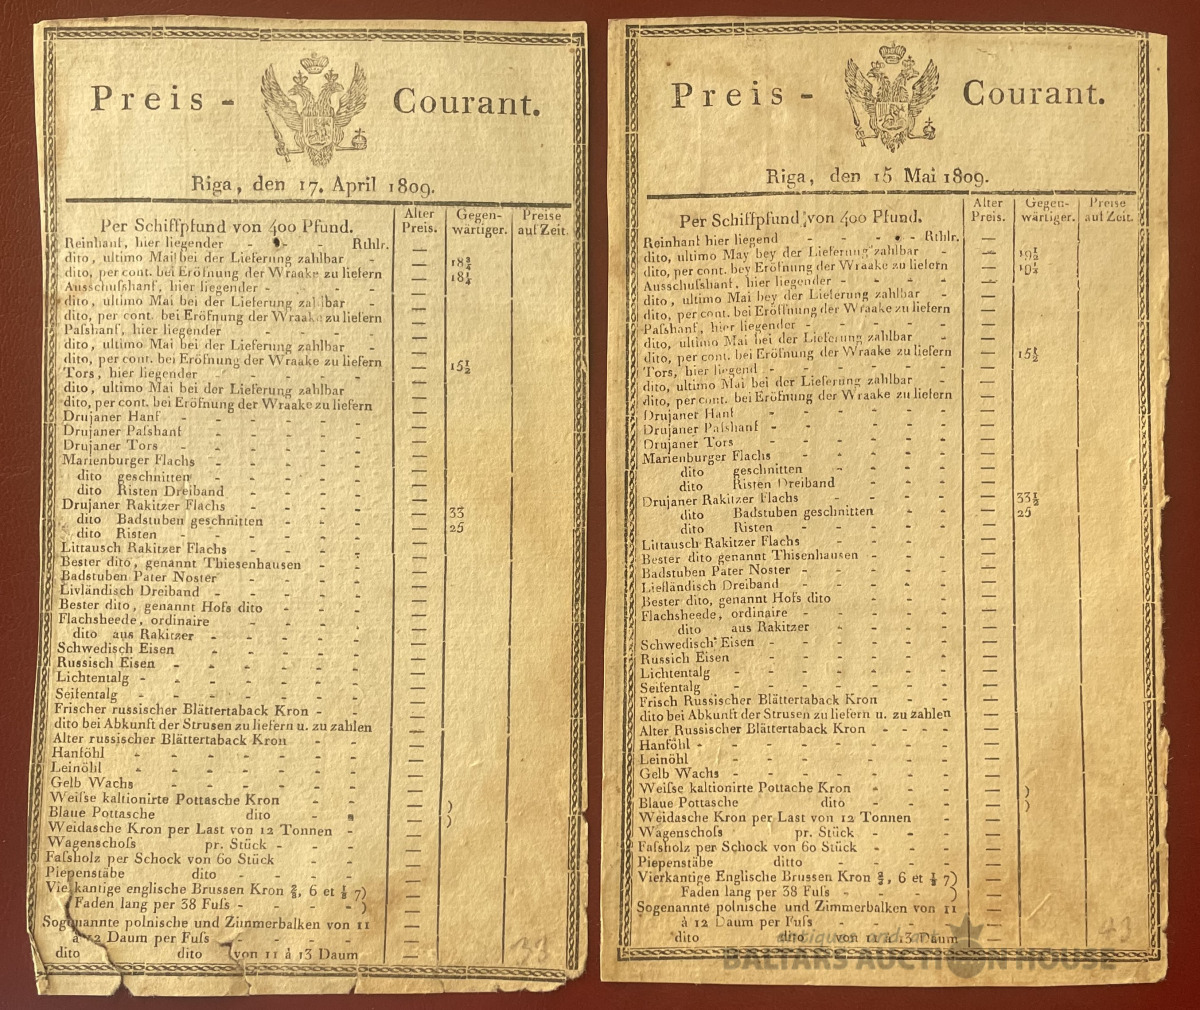 Preis - Courant.
Riga, den 17. April 1809.
Per Schiffpfund von 400 Pfund.
Alter Preis.
Gegen-wärtiger.
Preise auf Zeit.
Reinhanf, hier liegender - - - Rthlr. —
dito, ultimo Mai bei der Lieferung zahlbar - — 18¾
dito, per cont. bei Eröfnung der Wraake zu liefern — 18¼
Ausschufshanf, hier liegender - - - - —
dito, ultimo Mai bei der Lieferung zahlbar - —
dito, per cont. bei Eröfnung der Wraake zu liefern —
Pafshanf, hier liegender - - - - —
dito, ultimo Mai bei der Lieferung zahlbar - —
dito, per cont. bei Eröfnung der Wraake zu liefern — 15½
Tors, hier liegender - - - - —
dito, ultimo Mai bei der Lieferung zahlbar —
dito, per cont. bei Eröfnung der Wraake zu liefern —
Drujaner Hanf - - - - - —
Drujaner Pafshanf - - - - —
Drujaner Tors - - - - - —
Marienburger Flachs - - - - —
dito geschnitten - - - - —
dito Risten Dreiband - - - - —
Drujaner Rakitzer Flachs - - - - — 33
dito Badstuben geschnitten - - - — 25
dito Risten - - - - - —
Littausch Rakitzer Flachs - - - - —
Bester dito, genannt Thiesenhausen - - —
Badstuben Pater Noster - - - - —
Livländisch Dreiband - - - - —
Bester dito, genannt Hofs dito - - - —
Flachsheede, ordinaire - - - - —
dito aus Rakitzer - - - - - —
Schwedisch Eisen - - - - - —
Russisch Eisen - - - - - - —
Lichtentalg - - - - - - - —
Seifentalg - - - - - - - —
Frischer russischer Blättertaback Kron - - —
dito bei Abkunft der Strusen zu liefern u. zu zahlen —
Alter russischer Blättertaback Kron - - —
Hanföhl - - - - - - - —
Leinöhl - - - - - - - —
Gelb Wachs - - - - - - —
Weifse kaltionirte Pottasche Kron - - — )
Blaue Pottasche dito - - — )
Weidasche Kron per Last von 12 Tonnen - —
Wagenschofs pr. Stück - - - —
Fafsholz per Schock von 60 Stück - - —
Piepenstäbe dito - - - - —
Vierkantige englische Brussen Kron ⅔, 6 et ½ 7)
Faden lang per 38 Fufs - - - - ) —
Sogenannte polnische und Zimmerbalken von 11
à 12 Daum per Fufs - - - - —
dito dito von 11 à 13 Daum —
33
Preis - Courant.
Riga, den 15 Mai 1809.
Per Schiffpfund von 400 Pfund.
Alter Preis.
Gegen-wärtiger.
Preise auf Zeit.
Reinhanf hier liegend - - - - Rthlr. —
dito, ultimo May bey der Lieferung zahlbar - — 19½
dito, per cont. bey Eröfnung der Wraake zu liefern — 19¼
Ausschufshanf, hier liegender - - - - —
dito, ultimo Mai bey der Lieferung zahlbar - —
dito, per cont. bei Eröffnung der Wraake zu liefern —
Pafshanf, hier liegender - - - - - —
dito, ultimo Mai bei der Lieferung zahlbar - —
dito, per cont. bei Eröffnung der Wraake zu liefern — 15½
Tors, hier liegend - - - - - —
dito, ultimo Mai bei der Lieferung zahlbar - —
dito, per cont. bei Eröfnung der Wraake zu liefern —
Drujaner Hanf - - - - - —
Drujaner Pafshanf - - - - - —
Drujaner Tors - - - - - —
Marienburger Flachs - - - - —
dito geschnitten - - - - —
dito Risten Dreiband - - - —
Drujaner Rakitzer Flachs - - - - — 33½
dito Badstuben geschnitten - - - — 25
dito Risten - - - - - —
Littausch Rakitzer Flachs - - - - —
Bester dito genannt Thisenhausen - - - —
Badstuben Pater Noster - - - - - —
Liefländisch Dreiband - - - - —
Bester dito, genannt Hofs dito - - - —
Flachsheede, ordinaire - - - - - —
dito aus Rakitzer - - - - —
Schwedisch Eisen - - - - - - —
Russich Eisen - - - - - - —
Lichtentalg - - - - - - —
Seifentalg - - - - - - —
Frisch Russischer Blättertaback Kron - - —
dito bei Abkunft der Strusen zu liefern u. zu zahlen —
Alter Russischer Blättertaback Kron - - - - —
Hanföhl - - - - - - - —
Leinöhl - - - - - - - —
Gelb Wachs - - - - - - - —
Weifse kaltionirte Pottache Kron - - - — )
Blaue Pottasche dito - - - — )
Weidasche Kron per Last von 12 Tonnen - —
Wagenschofs pr. Stück - - - —
Fafsholz per Schock von 60 Stück - - - —
Piepenstäbe ditto - - - - —
Vierkantige Englische Brussen Kron ¾, 6 et ½ 7)
Faden lang per 38 Fufs - - - ) —
Sogenannte polnische und Zimmerbalken von 11
à 12 Daum per Fufs - - - - —
dito dito von 11 à 13 Daum —
43
BALTARS AUCTION HOUSE